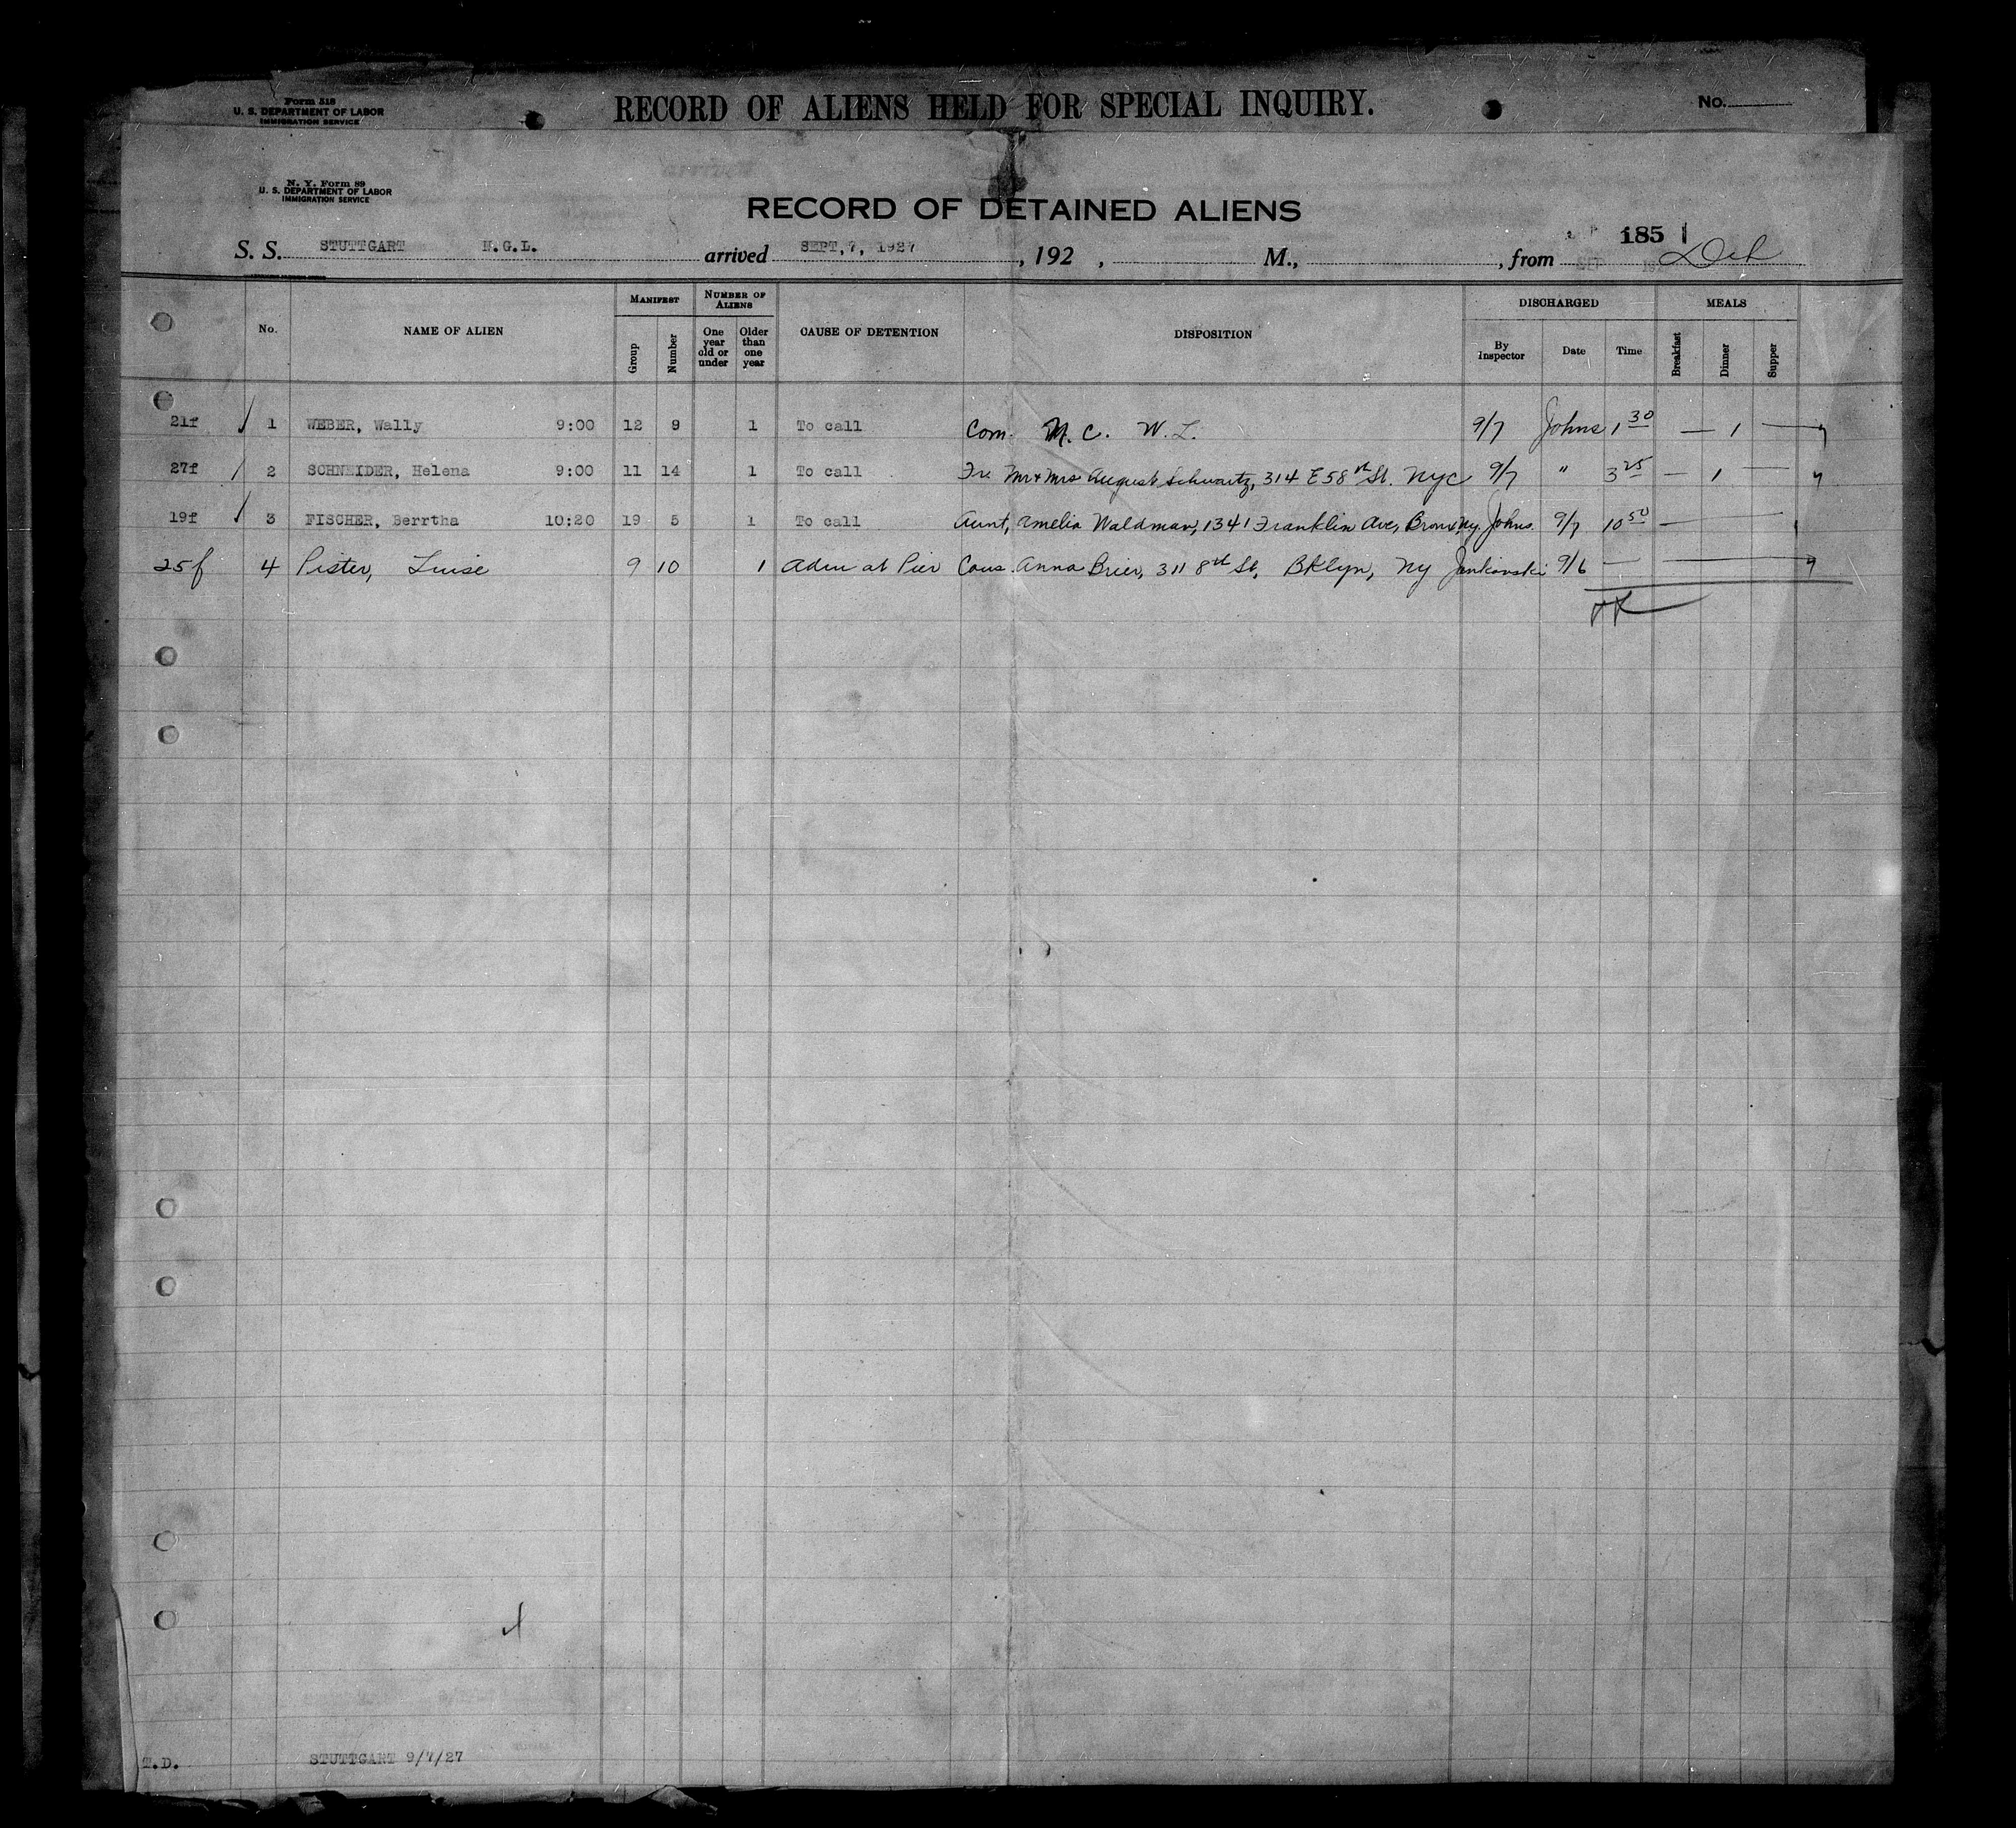 Form 318
U. S. DEPARTMENT OF LABOR
IMMIGRATION SERVICE
RECORD OF ALIENS HELD FOR SPECIAL INQUIRY.
No.
N. Y. Form 89
U. S. DEPARTMENT OF LABOR
IMMIGRATION SERVICE
RECORD OF DETAINED ALIENS
185
S. S. STUTTGART N.G.L. arrived SEPT,7, 1927, 192 , M., , from
No. NAME OF ALIEN MANIFEST Group Number NUMBER OF ALIENS One year old or under Older than one year CAUSE OF DETENTION DISPOSITION DISCHARGED By Inspector Date Time MEALS Breakfast Dinner Supper
21f 1 WEBER, Wally 9:00 12 9 1 To call Com. N. C. W. L. 9/7 Johns 1 30 — 1 —
27f 2 SCHNEIDER, Helena 9:00 11 14 1 To call Fr. Mr & Mrs August Schwartz, 314 E 58th St. NYC 9/7 " 3 25 — 1 —
19f 3 FISCHER, Berrtha 10:20 19 5 1 To call Aunt, Amelia Waldman, 1341 Franklin Ave, Bronx, Ny. Johns. 9/7 10 50 —
25f 4 Pister, Luise 9 10 1 Adm at Pier Cous. Anna Brier, 311 8th St, BKlyn, Ny Jankovski 9/6 — —
T.D. STUTTGART 9/7/27